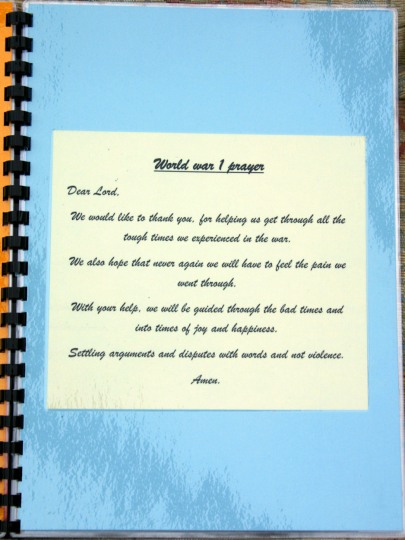 World war 1 prayer
Dear Lord,
We would like to thank you, for helping us get through all the
tough times we experienced in the war.
We also hope that never again we will have to feel the pain we
went through.
With your help, we will be guided through the bad times and
into times of joy and happiness.
Settling arguments and disputes with words and not violence.
Amen.